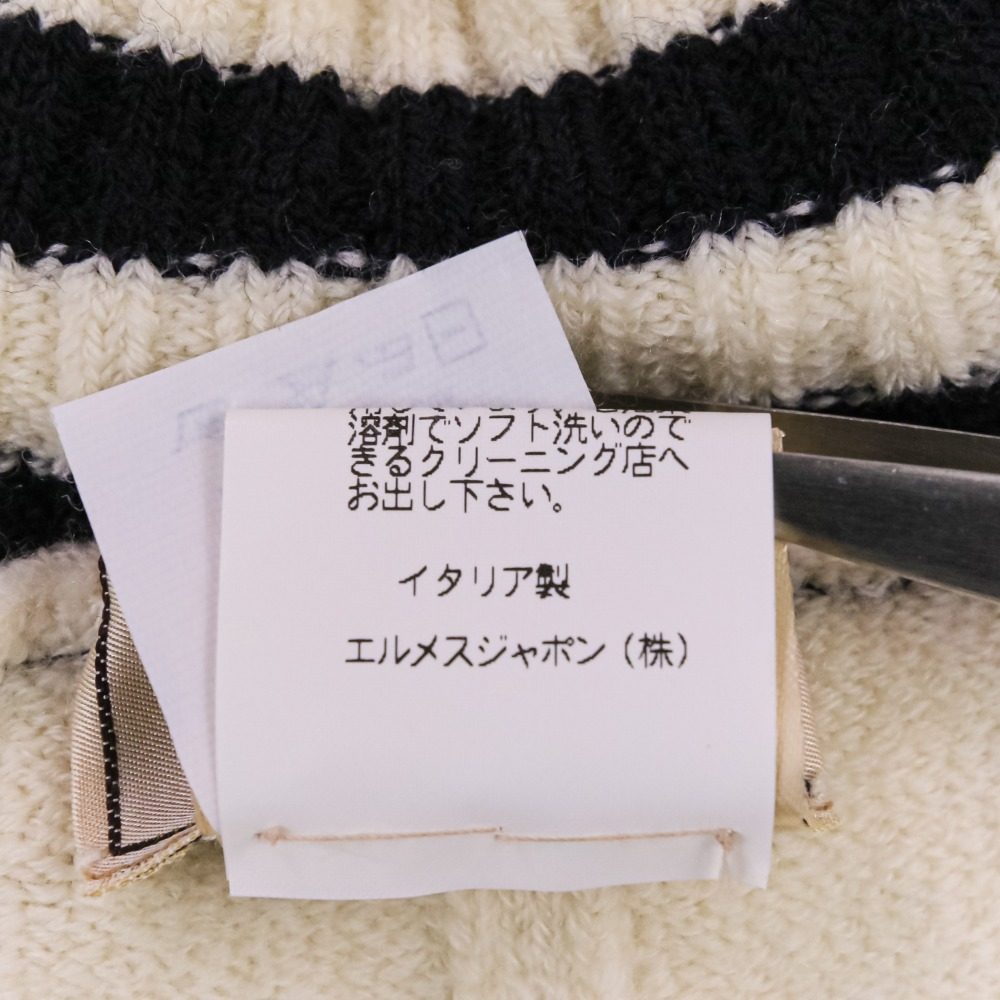 溶剤でソフト洗いので
きるクリーニング店へ
お出し下さい。
イタリア製
エルメスジャポン（株）